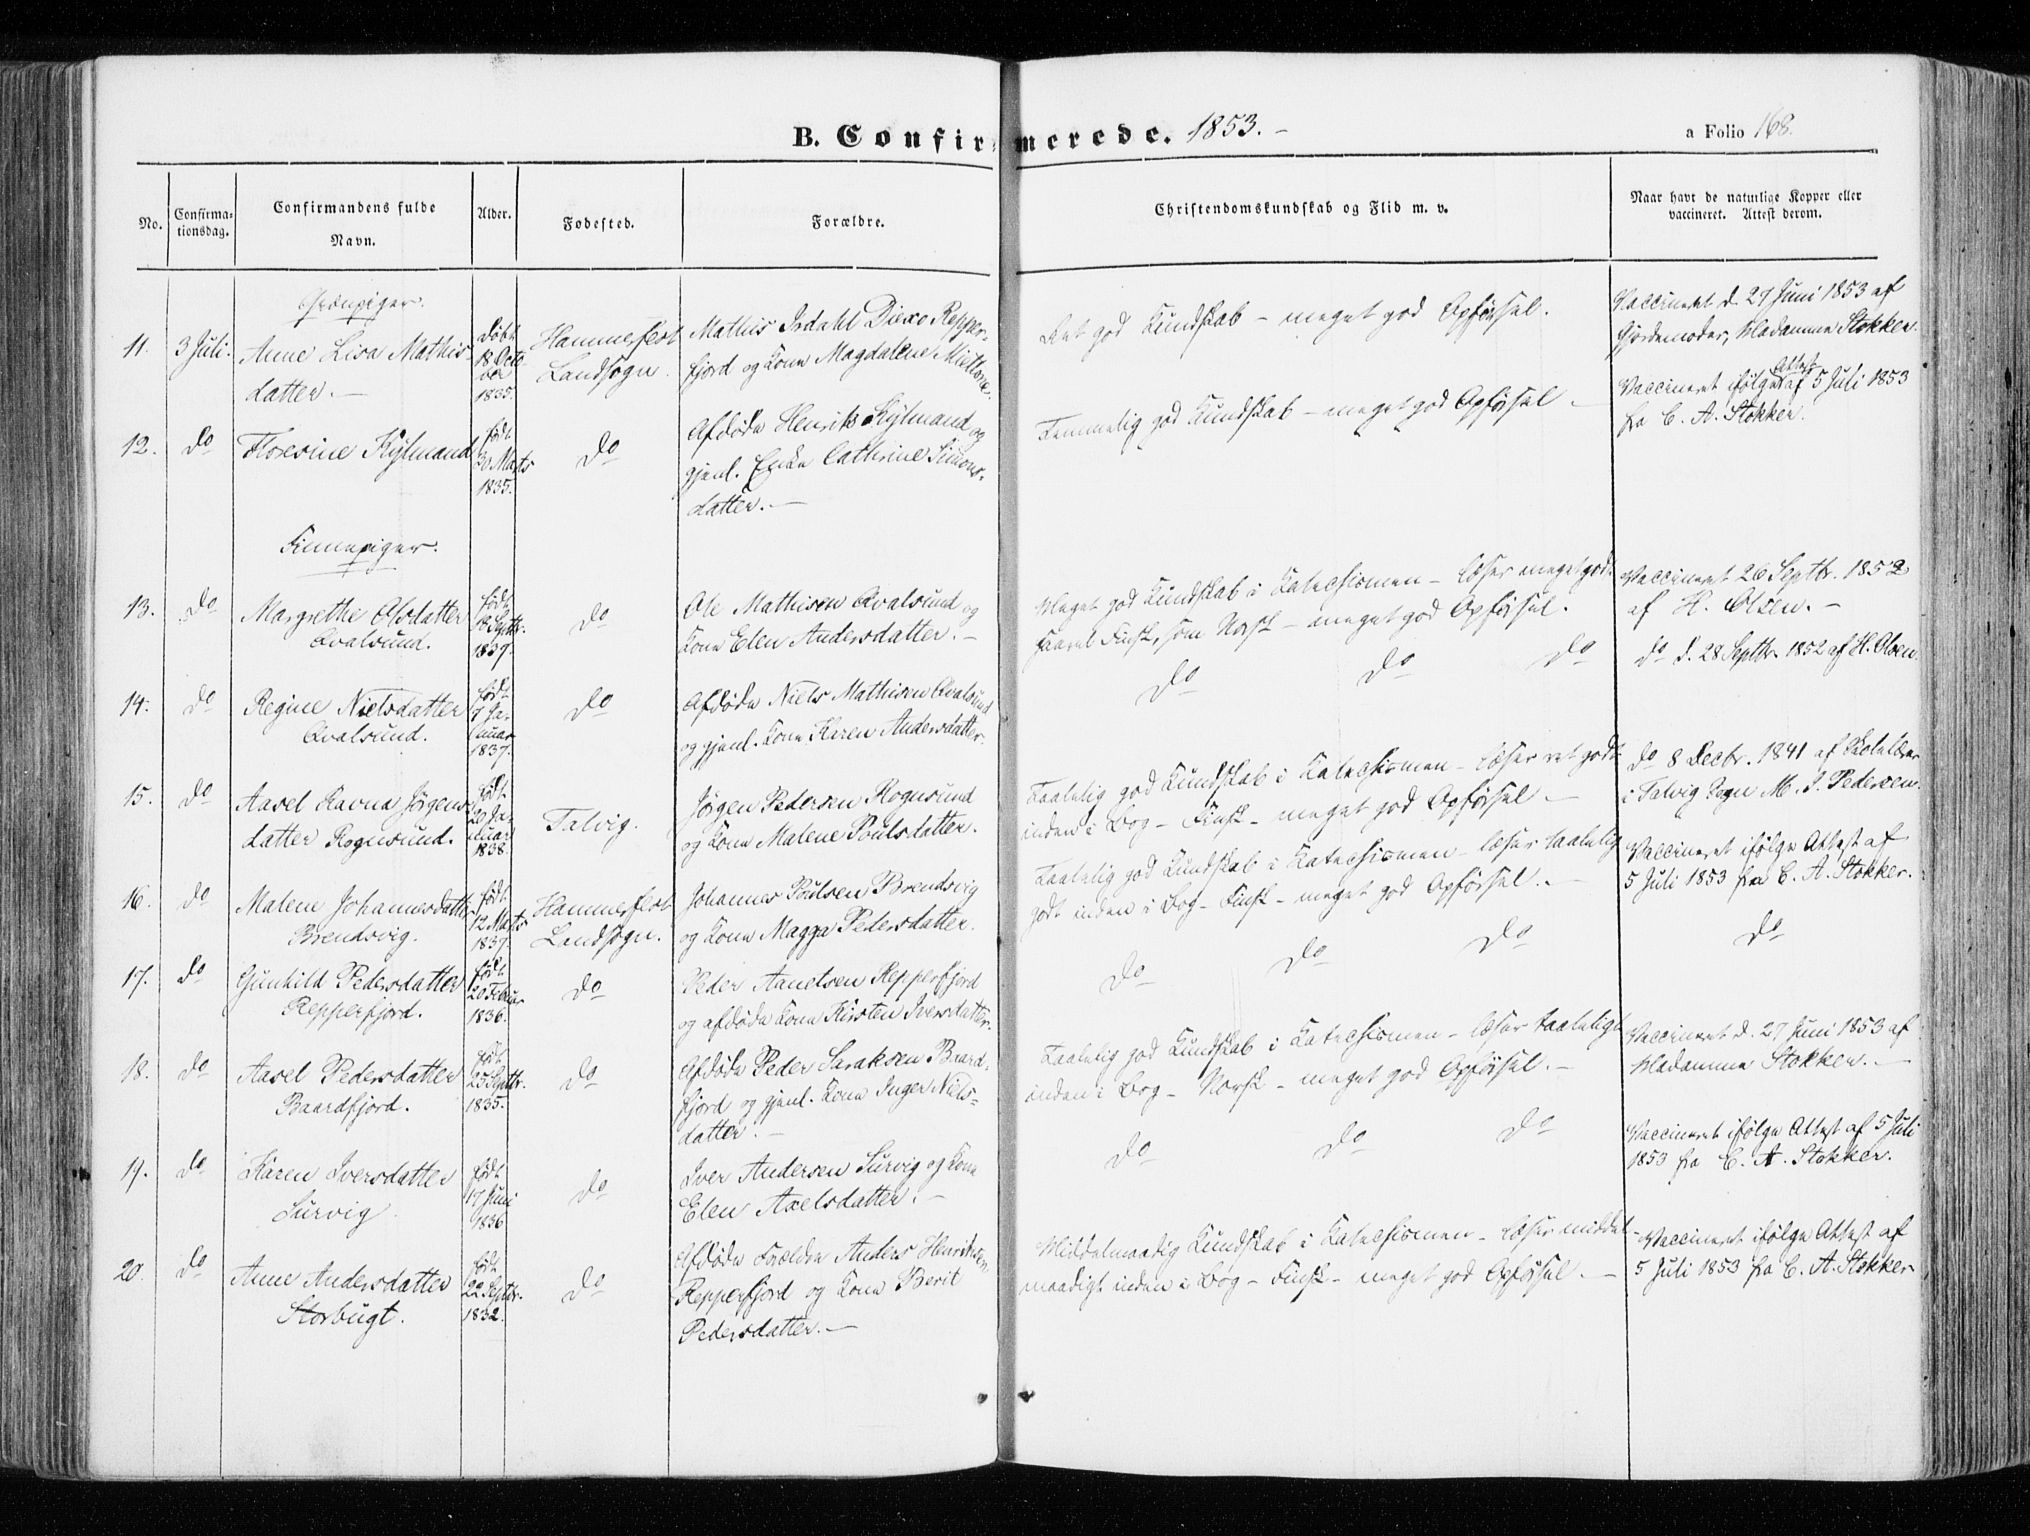 B. Confirmerede. 1853. –
a Folio 168.
No.
Confirma-
tionsdag.
Confirmandens fulde
Navn.
Alder.
Fødested.
Forældre.
Christendomskundskab og Flid m. v.
Naar havt de naturlige Kopper eller
vaccineret. Attest derom.
11.
3 Juli.
Anne Lisa Mathis-
datter. –
Døbt
18 Octo-
ber
1835.
Hammerfest
Landsogn.
Mathis Isdahl Diexo Repper-
fjord og Kone Magdalene
Ret god Kundskab – meget god Opførsel.
Vaccineret d. 27 Juni 1853 af
Gjordemoder, Madamme Stokker.
12.
Do
Floresine Kylmand
født
30 Marts
1835.
Do
Afdøde Henrik Kylmand og
gjenl. Enke Cathrine Simons-
datter. –
Temmelig god Kundskab – meget god Opførsel –
Vaccineret ifølge Attest af 5 Juli 1853
fra C. A. Stokker.
Finnepiger.
13.
Do
Margrethe Olsdatter
Qvalsund.
født
18 Septbr.
1837.
Do
Ole Mathisen Qvalsund og
Kone Elen Andersdatter. –
Meget god Kundskab i Katechismen – læser meget godt
saavel Finsk, som Norsk – meget god Opførsel.
Vaccineret 26 Septbr. 1852
af H. Olsen. –
14.
Do
Regine Nielsdatter
Qvalsund.
født
7 Ja-
nuar
1837.
Do
Afdøde Niels Mathisen Qvalsund
og gjenl. Kone Karen Andersdatter.
Do Do Do
Do d. 28 Septbr. 1852 af H. Olsen.
15.
Do
Aasel Ravna Jørgens-
datter Rognsund.
født
20 Ja-
nuar
1838.
Talvig.
Jørgen Pedersen Rognsund
og Kone Malene Poulsdatter.
Taalelig god Kundskab i Katechismen – læser ret godt
inden i Bog – Finsk – meget god Opførsel –
Do 8 Decbr. 1841 af Skolelærer
i Talvig Sogn M. J. Pedersen.
16.
Do
Malene Johannesdatter
Brendsvig.
født
12 Marts
1837.
Hammerfest
Landsogn.
Johannes Poulsen Brendsvig
og Kone Magga Pedersdatter.
Taalelig god Kundskab i Katechismen – læser taalelig
godt inden i Bog – Finsk – meget god Opførsel. –
Vaccineret ifølge Attest af
5 Juli 1853 fra C. A. Stokker.
17.
Do
Gunhild Pedersdatter
Repperfjord.
født
20 Februar
1836.
Do
Peder Repperfjord
og afdøde Kone Kirsten Iversdatter.
Do Do Do
Do
18.
Do
Aasel Pedersdatter
Baardfjord.
født
25 Septbr.
1835.
Do
Afdøde Peder Saraksen Baard-
fjord og gjenl. Kone Inger Niels-
datter. –
Taalelig god Kundskab i Katechismen – læser taaleligt
inden i Bog – Norsk – meget god Opførsel. –
Vaccineret d. 27 Juni 1853 af
Madamme Stokker. –
19.
Do
Karen Iversdatter
Survig
født
17 Juni
1836
Do
Iver Andersen Survig og Kone
Elen Axelsdatter. –
Do Do Do
Vaccineret ifølge Attest af 5 Juli
1853 fra C. A. Stokker.
20.
Do
Anne Andersdatter
Storbugt.
født
22 Septbr.
1832.
Do
Afdøde Forældre Anders Henriksen
Repperfjord og Kone Berit
Pedersdatter. –
Middelmaadig Kundskab i Katechismen – læser middel-
maadigt inden i Bog – Finsk – meget god Opførsel. –
Vaccineret ifølge Attest af
5 Juli 1853 fra C. A. Stokker